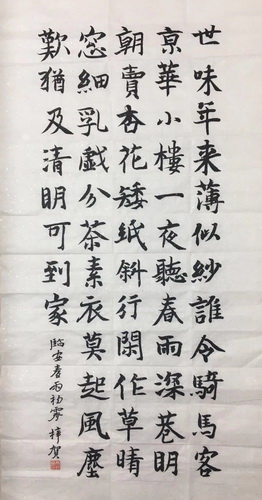 世味年来薄似紗誰令騎馬客
京華小樓一夜聽春雨深巷明
朝賣杏花矮紙斜行閑作草晴
窓細乳戲分茶素衣莫起風塵
歎猶及清明可到家
臨安春雨初霽 梓賀